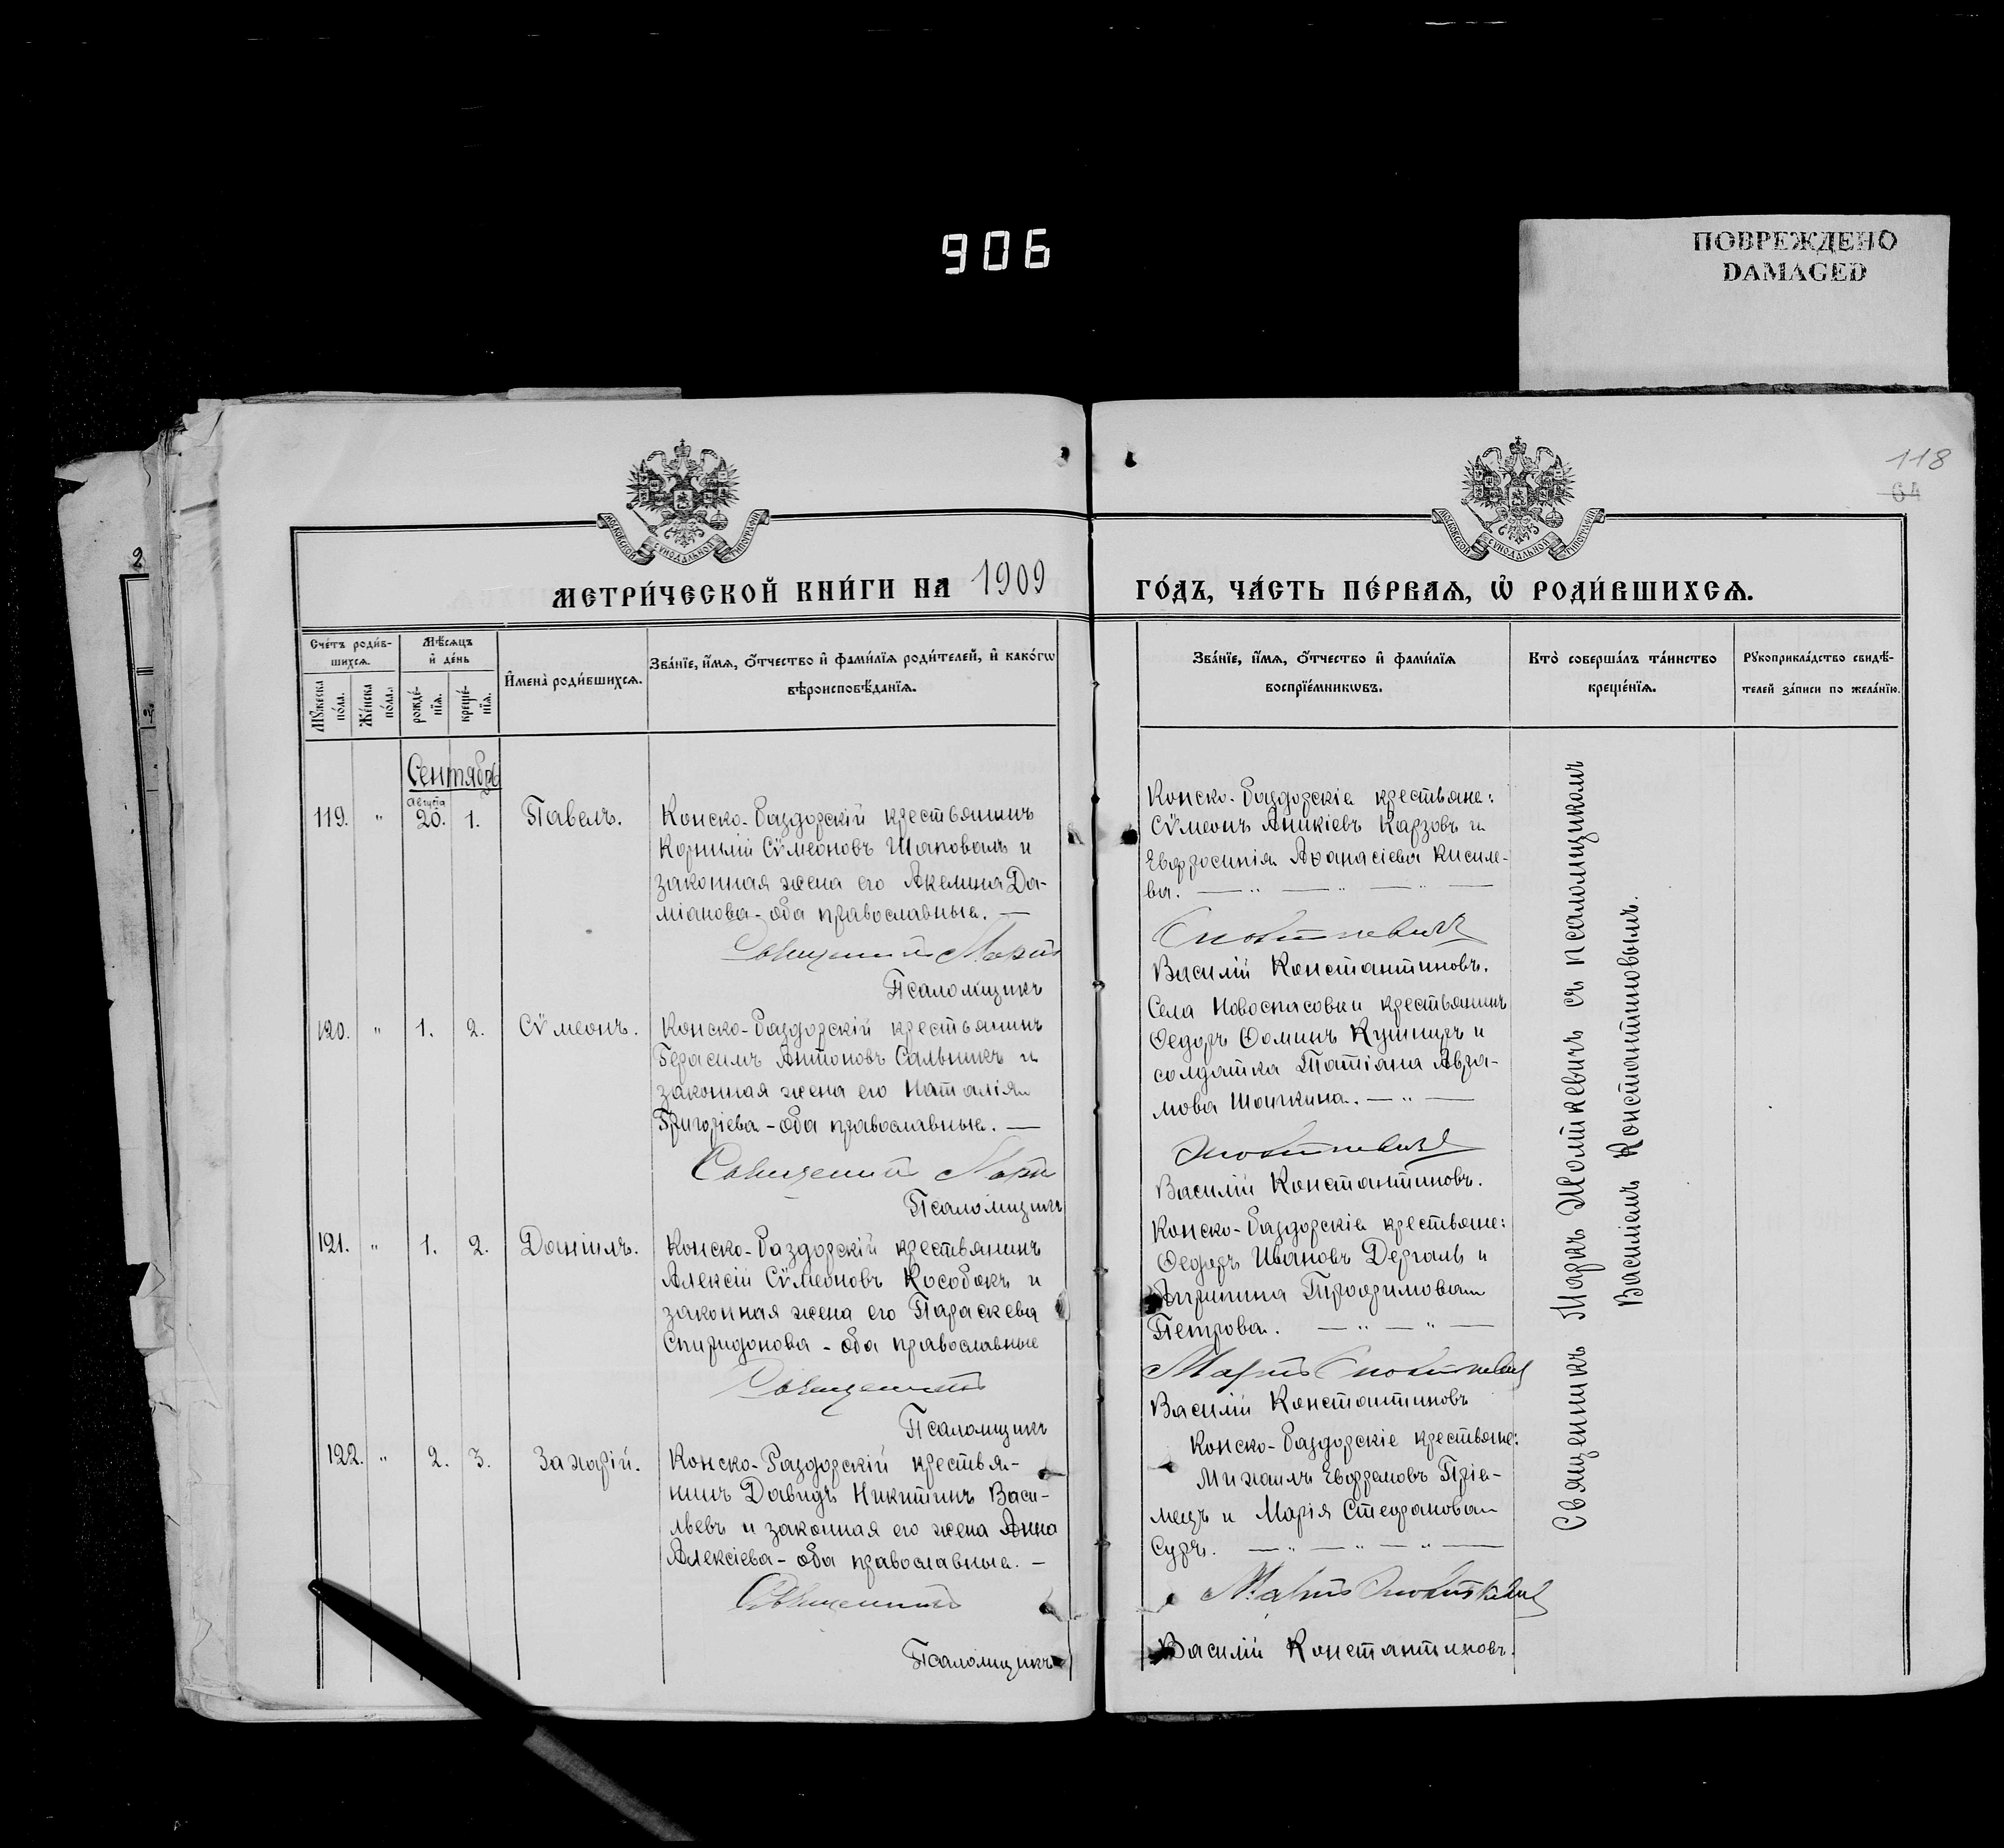 906
ПОВРЕЖДЕНО
DAMAGED
118
64
2
МОСКОВСКОЙ СѴНОДАЛЬНОЙ ТИПОГРАФІИ
МОСКОВСКОЙ СѴНОДАЛЬНОЙ ТИПОГРАФІИ
МЕТРИ́ЧЕСКОЙ КНИ́ГИ НА 1909
ГО́ДЪ, ЧА́СТЬ ПЕ́РВАѦ, Ѡ РОДИ́ВШИХСѦ.
Сче́тъ роди́в-
шихсѧ.
Мꙋ́жеска по́ла.
Же́нска по́ла.
Мѣ́сѧцъ
и де́нь
рожде́-
нїѧ.
креще́-
нїѧ.
Имена̀ роди́вшихсѧ.
Зва́нїе, и́мѧ, о́тчество и фами́лїѧ роди́телей, и како́гѡ
вѣроисповѣ́данїѧ.
Зва́нїе, и́мѧ, о́тчество и фами́лїѧ
воспрїе́мникѡвъ.
Кто̀ соверша́лъ та́инство
креще́нїѧ.
Рꙋкоприкла́дство свидѣ́-
телей за́писи по жела́нїю.
Сентябрь
119. " Августа 20. 1. Павелъ.
Конско-Раздорскій крестьянинъ
Корнилій Сѷмеоновъ Шаповалъ и
законная жена его Акелина Да-
міанова - оба православные. —
Священникъ Маркъ
Псаломщикъ
Конско-Раздорскіе крестьяне:
Сѷмеонъ Аникіевъ Карзовъ и
Евфросинія Аѳанасіева Кисиле-
ва. — " — " — " —
Жолткевичъ
Василій Константиновъ.
120. " 1. 2. Сѷмеонъ.
Конско-Раздорскій крестьянинъ
Герасимъ Антоновъ Сальникъ и
законная жена его Наталія
Григоріева - оба православные. —
Священникъ Маркъ
Псаломщикъ
Села Новоспасовки крестьянинъ
Ѳедоръ Ѳоминъ Кушниръ и
солдатка Татіана Авра-
мова — " —
Жолткевичъ
Василій Константиновъ.
121. " 1. 2. Даніилъ.
Конско-Раздорскій крестьянинъ
Алексій Сѷмеоновъ Кособокъ и
законная жена его Параскева
Спиридонова - оба православные
Священникъ
Псаломщикъ
Конско-Раздорскіе крестьяне:
Ѳедоръ Ивановъ Дергаль и
Агрипина Трофимова
Петрова. — " — " —
Маркъ Жолткевичъ
Василій Константиновъ
122. " 2. 3. Захарій.
Конско-Раздорскій крестья-
нинъ Давидъ Никитинъ Васи-
льевъ и законная его жена Анна
Алексіева - оба православные. —
Священникъ
Псаломщикъ
Конско-Раздорскіе крестьяне:
Михаилъ Евфремовъ Пріе-
мецъ и Марія Стефанова
Суръ. — " — " — " —
Маркъ Жолткевичъ
Василій Константиновъ.
Священникъ Маркъ Жолткевичъ съ псаломщикомъ
Василіемъ Константиновымъ.